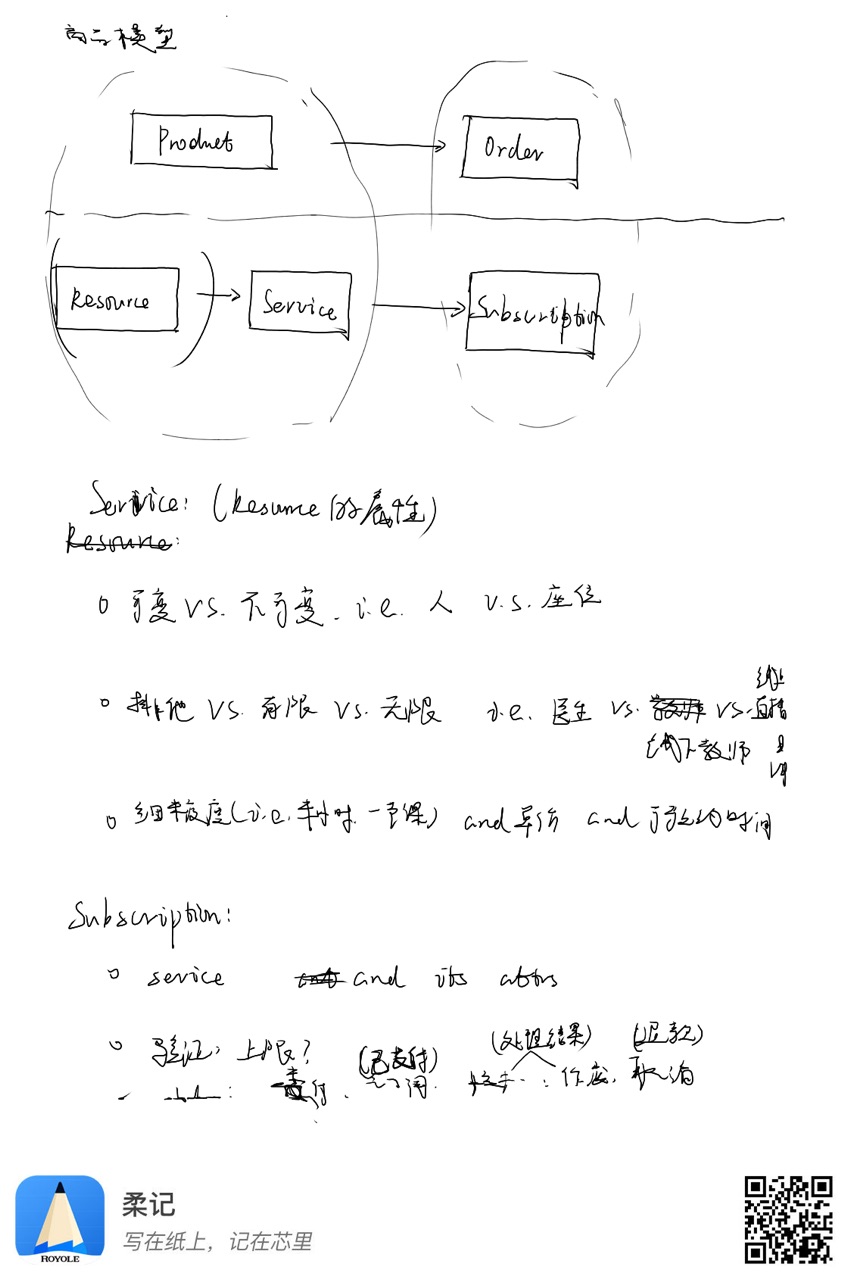 商品模型
Product
Order
Resource
Service
Subscription
Service: (Resource的属性)
Resource:
可变 VS. 不可变. i.e. 人 v.s. 座位
排他 VS. 有限 VS. 无限 i.e. 医生 vs. 教师 vs. 线上直播
线下教师
细粒度(i.e. 半小时. 一节课) and 单价 and 可预约时间
Subscription:
service and its attrs
验证: 上限?
(已支付) (处理结果) (退款)
作废, 取消
柔记
写在纸上，记在芯里
ROYOLE